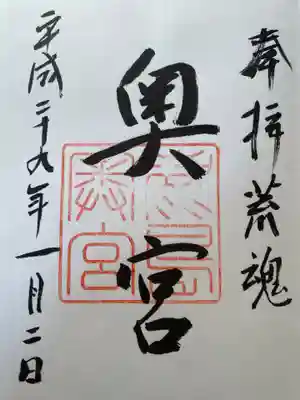 奉拝荒魂
奥宮
平成二十九年一月二日
鹿島
奥宮